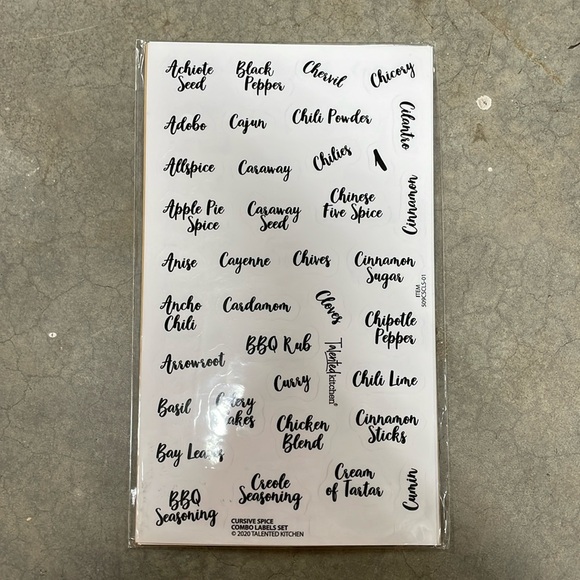 Achiote
Seed
Black
Pepper
Chervil
Chicory
Adobo
Cajun
Chili Powder
Cilantro
Allspice
Caraway
Chilies
1
Apple Pie
Spice
Caraway
Seed
Chinese
Five Spice
Cinnamon
Anise
Cayenne
Chives
Cinnamon
Sugar
ITEM
509CSCLS-01
Ancho
Chili
Cardamom
Cloves
Chipotle
Pepper
BBQ Rub
Talented
kitchen®
Arrowroot
Curry
Chili Lime
Basil
Celery
Flakes
Chicken
Blend
Cinnamon
Sticks
Bay Leaves
BBQ
Seasoning
Creole
Seasoning
Cream
of Tartar
Cumin
CURSIVE SPICE
COMBO LABELS SET
© 2020 TALENTED KITCHEN